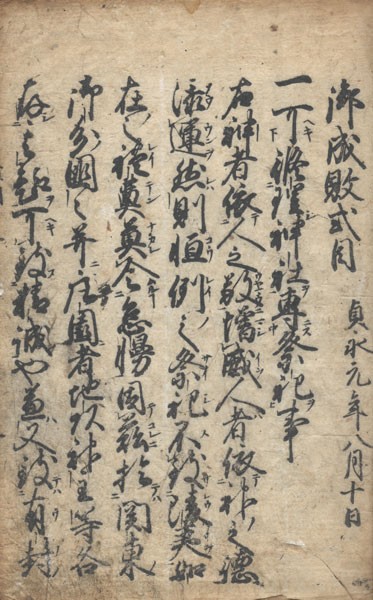 御成敗式目
貞永元年八月十日
一可修理神社專祭祀事
右神者依人之敬增威人者依神之德
添運然則恒例之祭祀不致陵夷如
在之禮奠莫令怠慢因茲於関東
御分國々并庄園者地頭神主等各
存其趣可致精誠也兼又致有封